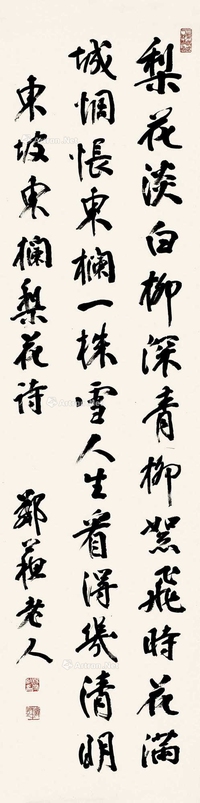 梨花淡白柳深青柳絮飛時花滿
城惆悵東欄一株雪人生看得幾清明
東坡東欄梨花詩
鄭蘇老人